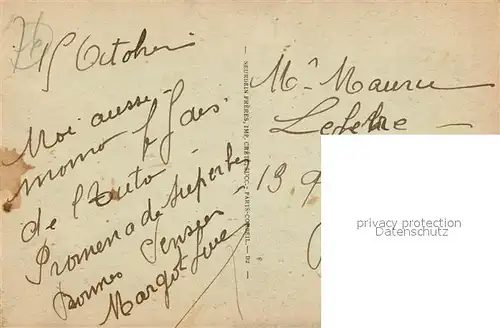 15 Octobre
Moi aussi
momo je fais
de l'Auto
Promenade superbe
Bonnes Pensées
Margot
SEURDRIN FRÈRES, IMP. CRÉTÉ SUCC., PARIS-CORBEIL.
Mr Maurice
Lefebre
13, 9
privacy protection
Datenschutz